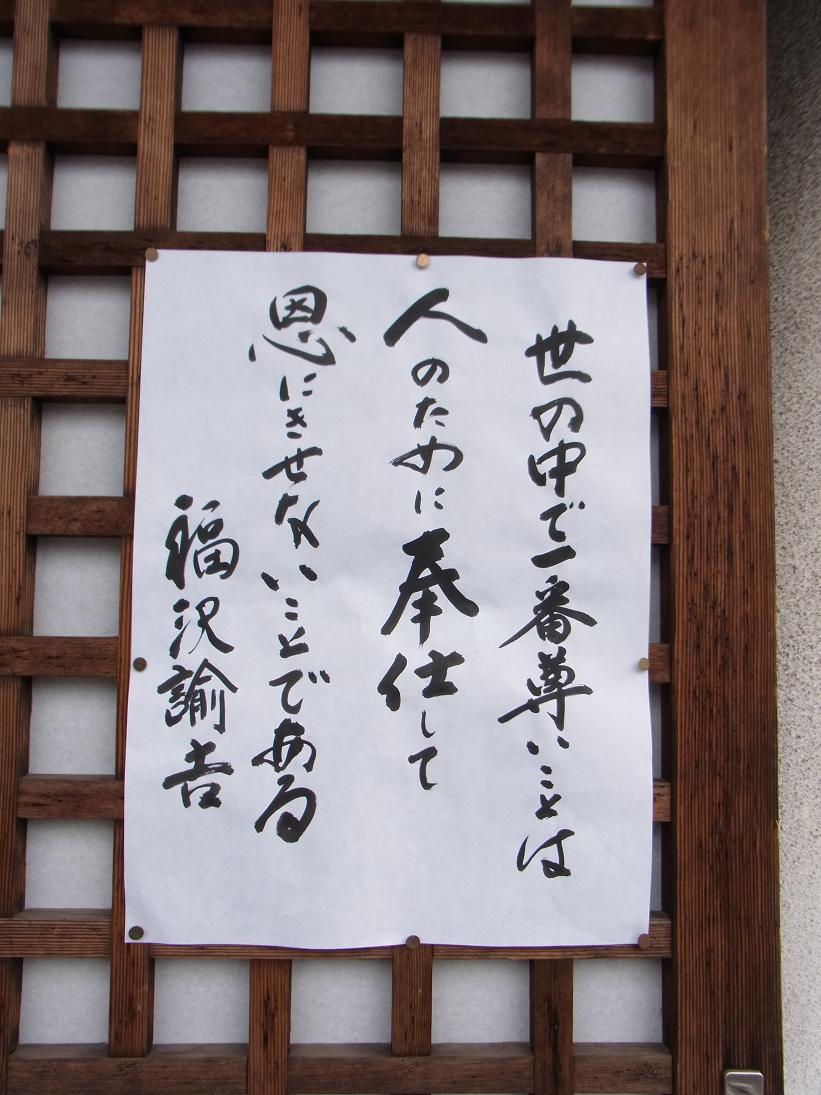 世の中で一番尊いことは
人のために奉仕して
恩にきせないことである
福沢諭吉